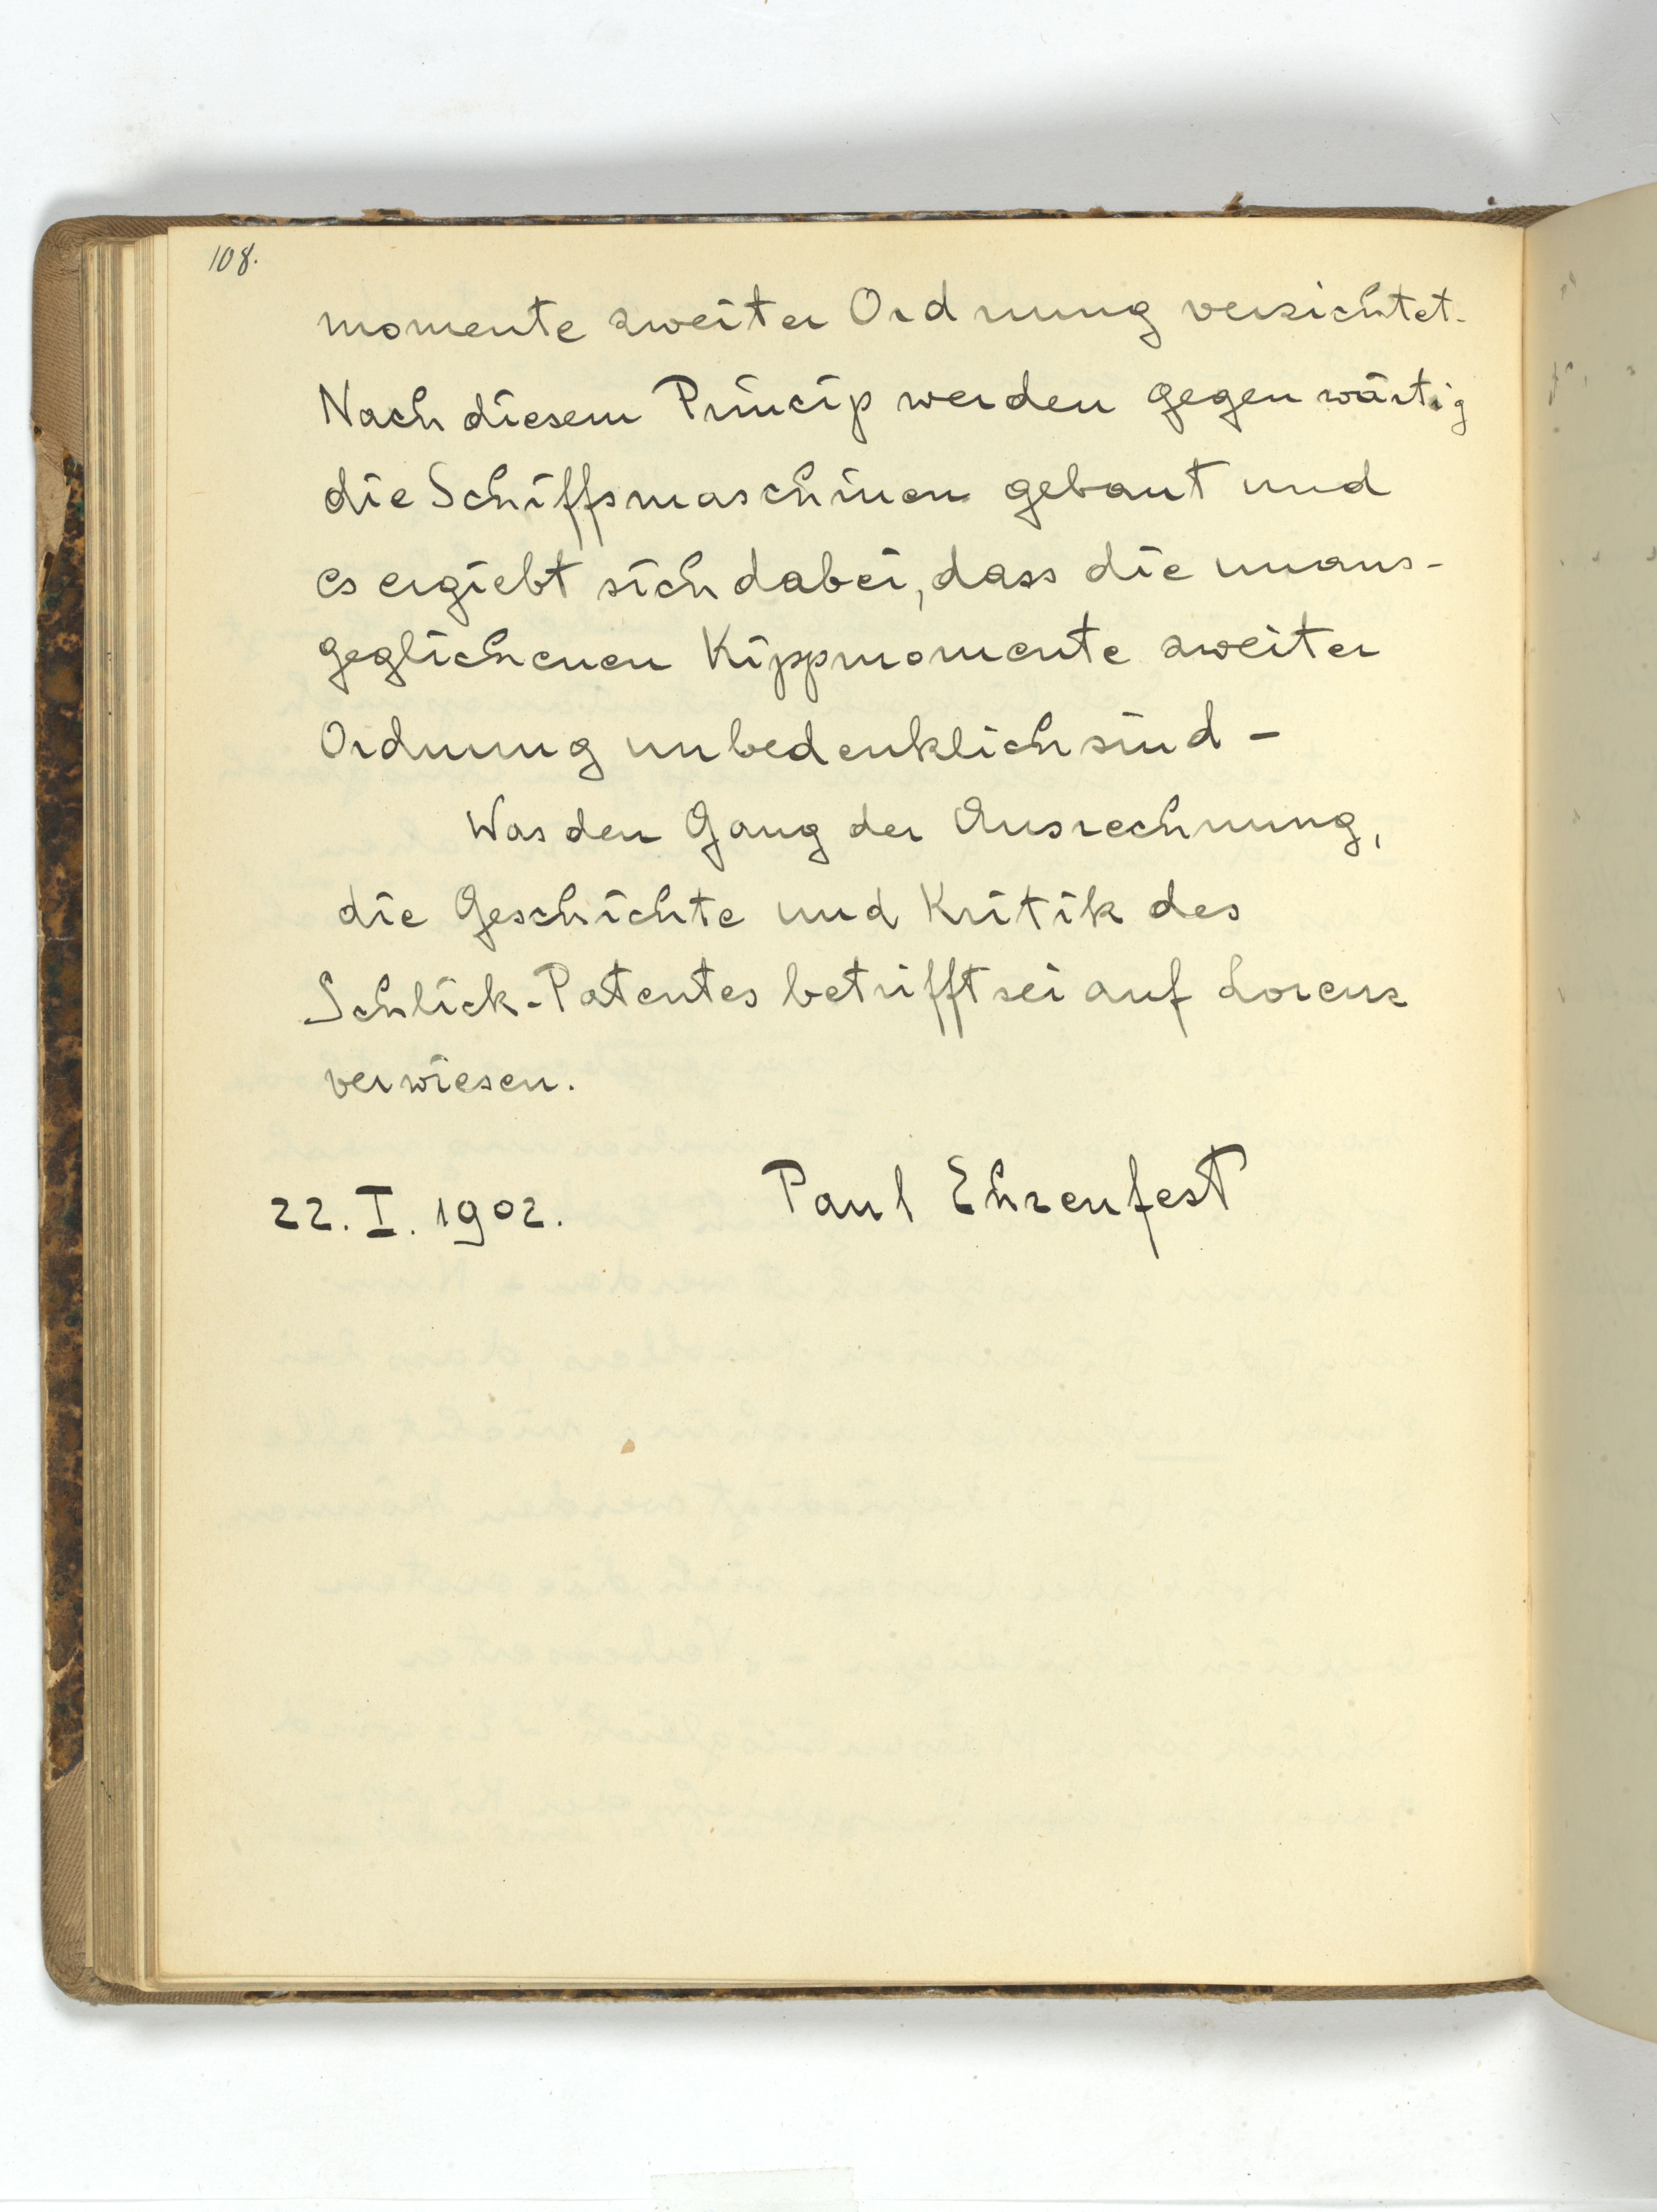 108.
momente zweiter Ordnung verzichtet.
Nach diesem Princip werden gegenwärtig
die Schiffsmaschinen gebaut und
es ergiebt sich dabei, dass die unaus-
geglichenen Kippmomente zweiter
Ordnung unbedenklich sind –
Was den Gang der Ausrechnung,
die Geschichte und Kritik des
Schlick-Patentes betrifft sei auf Lorenz
verwiesen.
22. I. 1902. Paul Ehrenfest